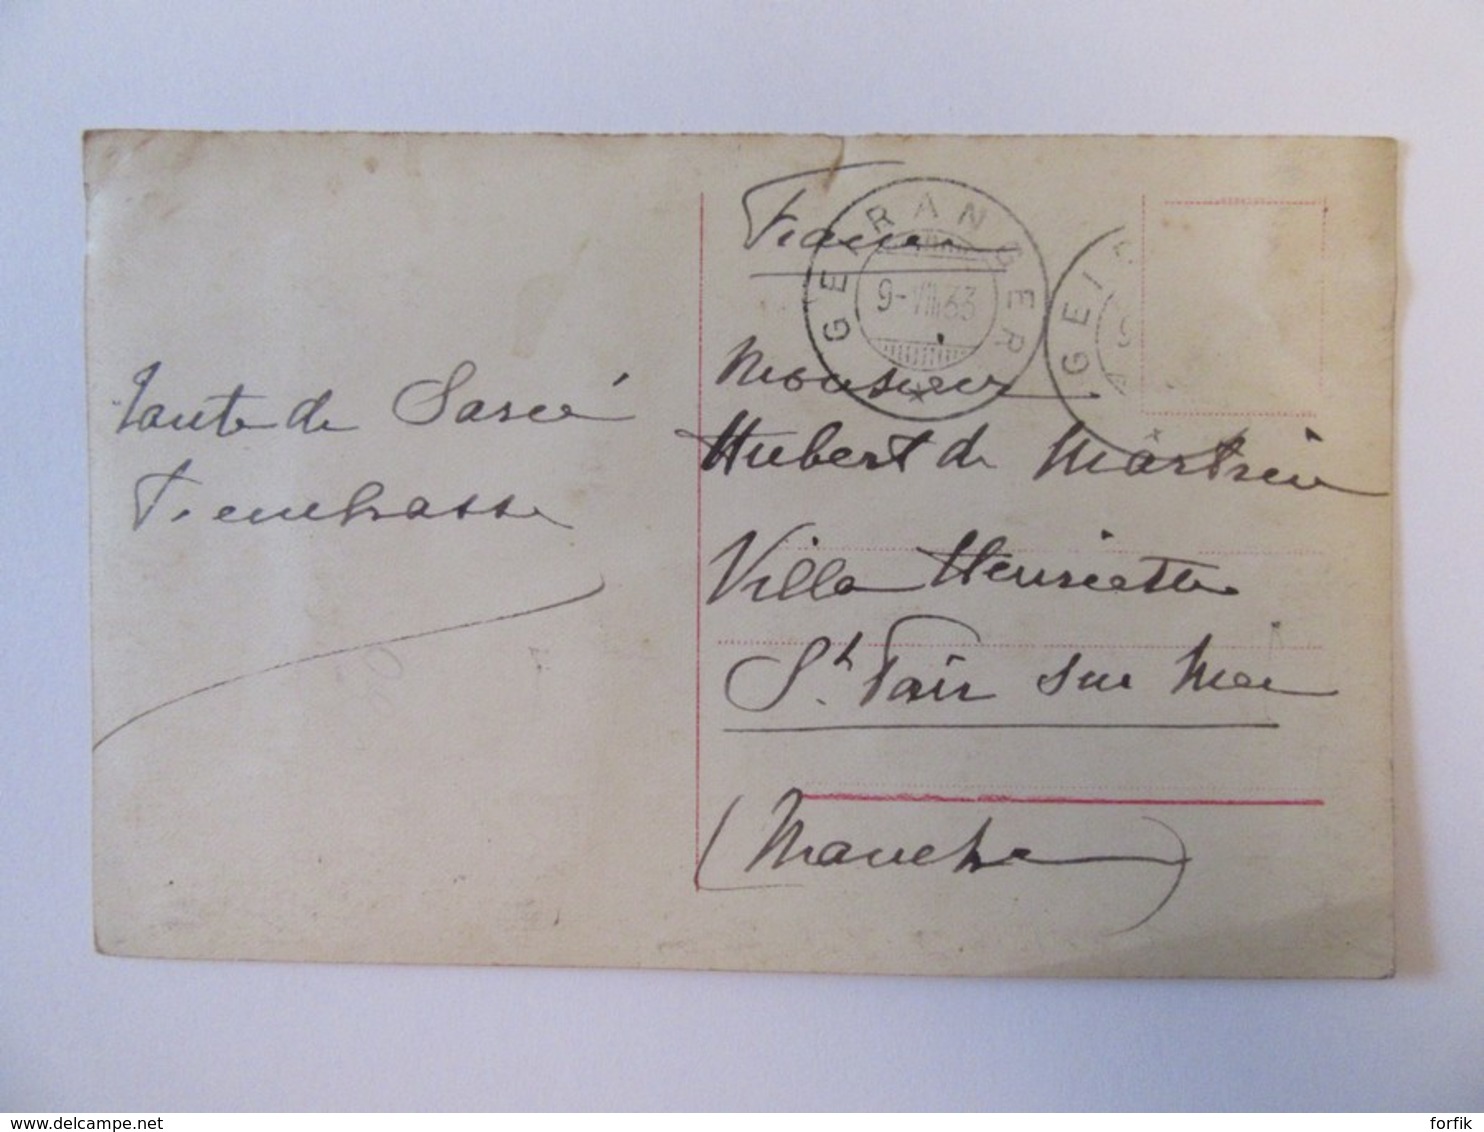 Tante de Sarcé
T'embrasse
France
GEIRANGER
9-VIII 33
GEI
Monsieur
Hubert de
Villa Henriette
St. Pair sur Mer
(Manche)
www.delcampe.net
forfik